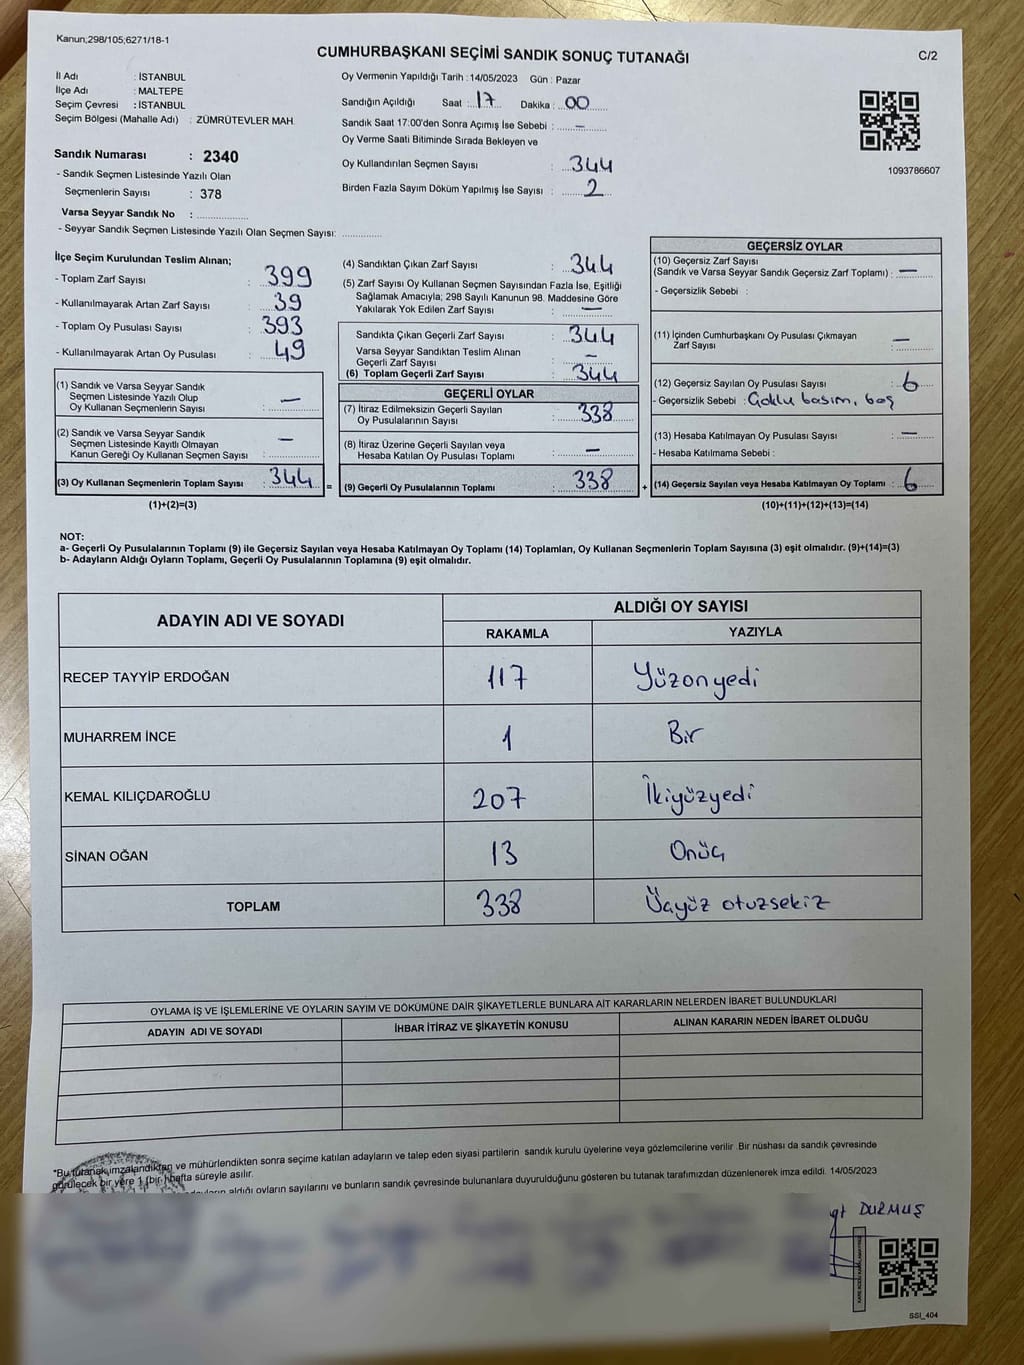 Kanun;298/105;6271/18-1
CUMHURBAŞKANI SEÇİMİ SANDIK SONUÇ TUTANAĞI
C/2
İl Adı : İSTANBUL
İlçe Adı : MALTEPE
Seçim Çevresi : İSTANBUL
Seçim Bölgesi (Mahalle Adı) : ZÜMRÜTEVLER MAH.
Sandık Numarası : 2340
- Sandık Seçmen Listesinde Yazılı Olan
Seçmenlerin Sayısı : 378
Varsa Seyyar Sandık No :
- Seyyar Sandık Seçmen Listesinde Yazılı Olan Seçmen Sayısı:
Oy Vermenin Yapıldığı Tarih : 14/05/2023 Gün : Pazar
Sandığın Açıldığı Saat : 17 Dakika : 00
Sandık Saat 17:00'den Sonra Açımış İse Sebebi : —
Oy Verme Saati Bitiminde Sırada Bekleyen ve
Oy Kullandırılan Seçmen Sayısı : 344
Birden Fazla Sayım Döküm Yapılmış İse Sayısı : 2
1093786607
İlçe Seçim Kurulundan Teslim Alınan;
- Toplam Zarf Sayısı : 399
- Kullanılmayarak Artan Zarf Sayısı : 39
- Toplam Oy Pusulası Sayısı : 393
- Kullanılmayarak Artan Oy Pusulası : 49
(1) Sandık ve Varsa Seyyar Sandık
Seçmen Listesinde Yazılı Olup
Oy Kullanan Seçmenlerin Sayısı : —
(2) Sandık ve Varsa Seyyar Sandık
Seçmen Listesinde Kayıtlı Olmayan
Kanun Gereği Oy Kullanan Seçmen Sayısı : —
(3) Oy Kullanan Seçmenlerin Toplam Sayısı : 344 =
(1)+(2)=(3)
(4) Sandıktan Çıkan Zarf Sayısı : 344
(5) Zarf Sayısı Oy Kullanan Seçmen Sayısından Fazla İse, Eşitliği
Sağlamak Amacıyla; 298 Sayılı Kanunun 98. Maddesine Göre
Yakılarak Yok Edilen Zarf Sayısı : —
Sandıkta Çıkan Geçerli Zarf Sayısı : 344
Varsa Seyyar Sandıktan Teslim Alınan
Geçerli Zarf Sayısı : —
(6) Toplam Geçerli Zarf Sayısı : 344
GEÇERLİ OYLAR
(7) İtiraz Edilmeksizin Geçerli Sayılan
Oy Pusulalarının Sayısı : 338
(8) İtiraz Üzerine Geçerli Sayılan veya
Hesaba Katılan Oy Pusulası Toplamı : —
(9) Geçerli Oy Pusulalarının Toplamı : 338 +
GEÇERSİZ OYLAR
(10) Geçersiz Zarf Sayısı
(Sandık ve Varsa Seyyar Sandık Geçersiz Zarf Toplamı) : —
- Geçersizlik Sebebi :
(11) İçinden Cumhurbaşkanı Oy Pusulası Çıkmayan
Zarf Sayısı : —
(12) Geçersiz Sayılan Oy Pusulası Sayısı : 6
- Geçersizlik Sebebi : Çoklu basım, boş
(13) Hesaba Katılmayan Oy Pusulası Sayısı : —
- Hesaba Katılmama Sebebi :
(14) Geçersiz Sayılan veya Hesaba Katılmayan Oy Toplamı : 6
(10)+(11)+(12)+(13)=(14)
NOT:
a- Geçerli Oy Pusulalarının Toplamı (9) ile Geçersiz Sayılan veya Hesaba Katılmayan Oy Toplamı (14) Toplamları, Oy Kullanan Seçmenlerin Toplam Sayısına (3) eşit olmalıdır. (9)+(14)=(3)
b- Adayların Aldığı Oyların Toplamı, Geçerli Oy Pusulalarının Toplamına (9) eşit olmalıdır.
ADAYIN ADI VE SOYADI ALDIĞI OY SAYISI
RAKAMLA YAZIYLA
RECEP TAYYİP ERDOĞAN 117 Yüzonyedi
MUHARREM İNCE 1 Bir
KEMAL KILIÇDAROĞLU 207 İkiyüzyedi
SİNAN OĞAN 13 Onüç
TOPLAM 338 Üçyüz otuzsekiz
OYLAMA İŞ VE İŞLEMLERİNE VE OYLARIN SAYIM VE DÖKÜMÜNE DAİR ŞİKAYETLERLE BUNLARA AİT KARARLARIN NELERDEN İBARET BULUNDUKLARI
ADAYIN ADI VE SOYADI İHBAR İTİRAZ VE ŞİKAYETİN KONUSU ALINAN KARARIN NEDEN İBARET OLDUĞU
*Bu tutanak imzalandıktan ve mühürlendikten sonra seçime katılan adayların ve talep eden siyasi partilerin sandık kurulu üyelerine veya gözlemcilerine verilir. Bir nüshası da sandık çevresinde
görülecek bir yere 1 (bir) hafta süreyle asılır.
aldığı oyların sayılarını ve bunların sandık çevresinde bulunanlara duyurulduğunu gösteren bu tutanak tarafımızdan düzenlenerek imza edildi. 14/05/2023
DURMUŞ
SSI_404